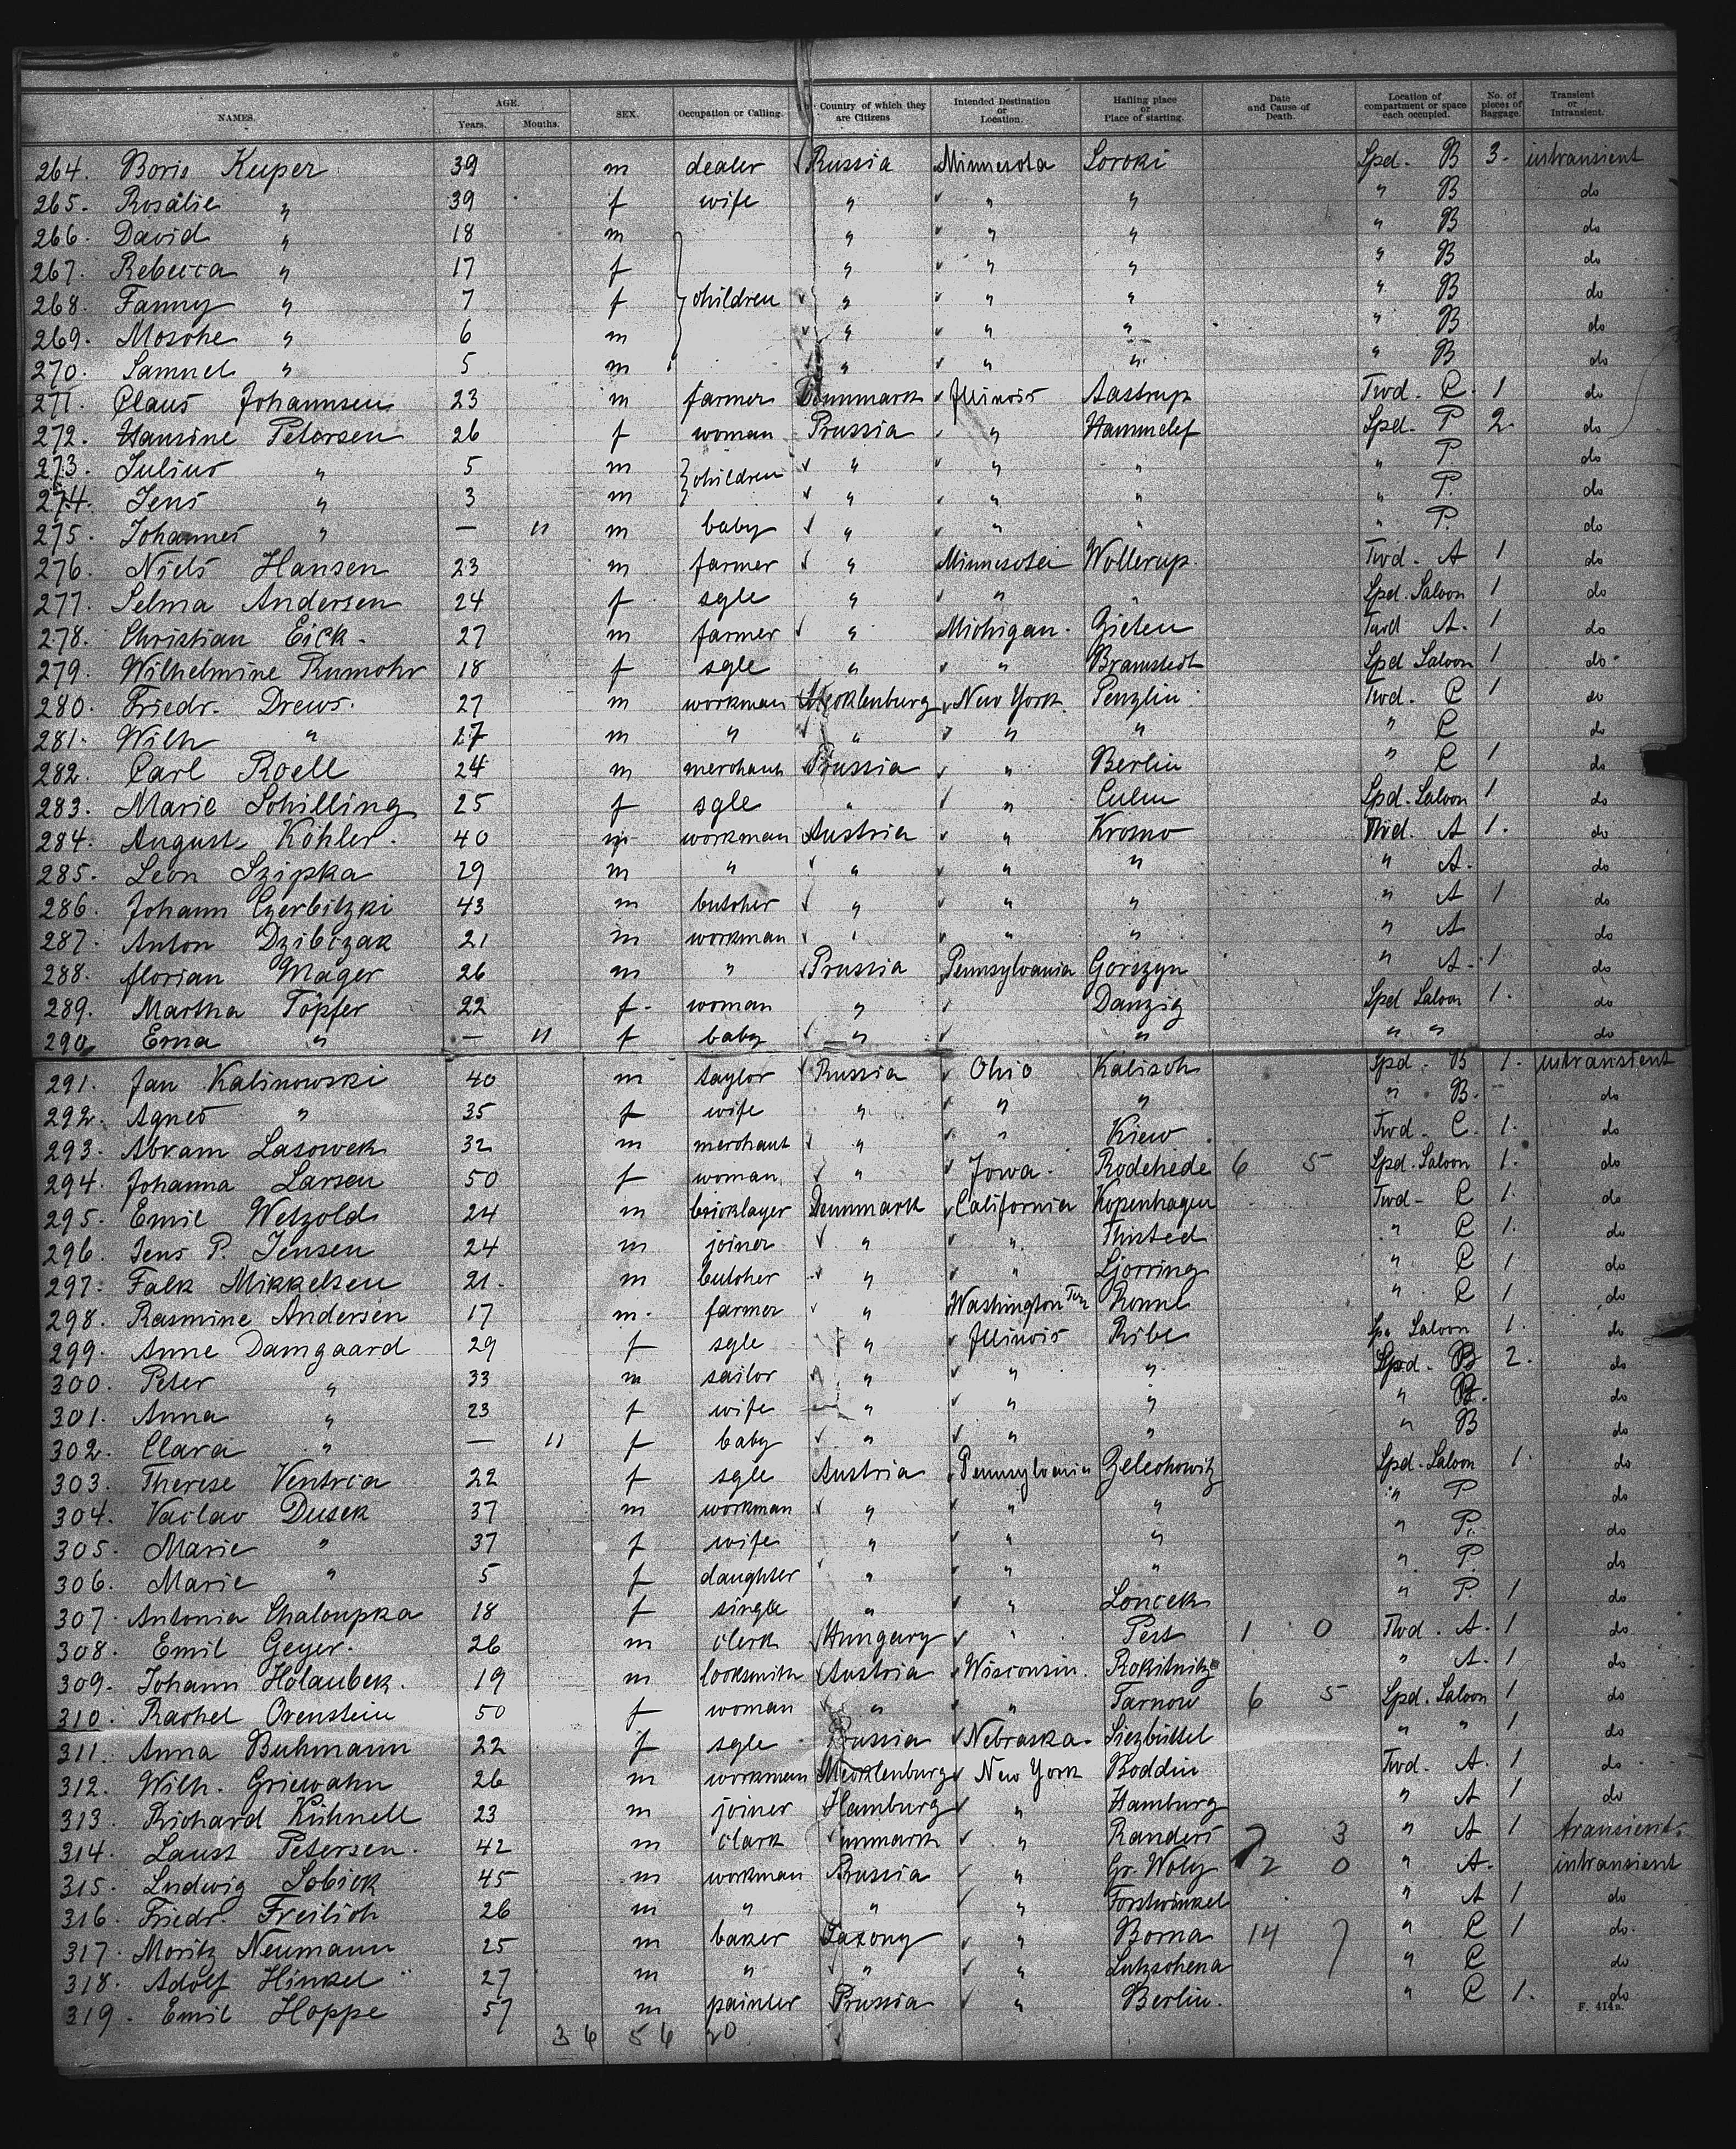 NAMES. AGE. Years. Months. SEX. Occupation or Calling. Country of which they are Citizens Intended Destination or Location. Hailing place or Place of starting. Date and Cause of Death. Location of compartment or space each occupied. No. of pieces of Baggage. Transient or Intransient.
264. Boris Kuper 39 m dealer Russia Minnesota Soroki Spd. B 3. intransient
265. Rosalie " 39 f wife " " " " B do
266. David " 18 m " " " " B do
267. Rebecca " 17 f " " " " B do
268. Fanny " 7 f children " " " " B do
269. Mosche " 6 m " " " " B do
270. Samuel " 5 m " " " " B do
271. Claus Johannsen 23 m farmer Dennmark Illinois Aastrup Twd. C. 1 do
272. Hansine Petersen 26 f woman Prussia " Hammelef Spd. P 2. do
273. Julius " 5 m children " " " " P do
274. Jens " 3 m " " " " P. do
275. Johannes " — 11 m baby " " " " P. do
276. Niels Hansen 23 m farmer " Minnesota Wollerup. Twd. A 1 do
277. Selma Andersen 24 f sgle " " " Spd. Saloon 1 do
278. Christian Eick. 27 m farmer " Michigan. Gieten Twd A. 1 do
279. Wilhelmine Rumohr 18 f sgle " " Bramstedt Spd Saloon 1 do
280. Friedr. Drews. 27 m workman Mecklenburg New York Penzlin Twd. C 1 do
281. Wilh " 27 m " " " " " C do
282. Carl Roell 24 m merchant Prussia " Berlin " C 1 do
283. Marie Schilling 25 f sgle " " Culm Spd. Saloon 1 do
284. August Köhler. 40 m workman Austria " Krosno Twd. A 1. do
285. Leon Szipka 29 m " " " " " A. do
286. Johann Czerbitzki 43 m butcher " " " " A 1 do
287. Anton Dzibczak 21 m workman " " " " A do
288. Florian Mager 26 m " Prussia Pennsylvania Gorszyn " A. 1 do
289. Martha Töpfer 22 f woman " Danzig Spd Saloon 1. do
290. Erna " — 11 f baby " " " " do
291. Jan Kalinowski 40 m taylor Russia Ohio Kalisch Spd. B 1. intransient
292. Agnes " 35 f wife " " " " B. do
293. Abram Lasowek 32 m merchant " " Kiew Twd. C. 1. do
294. Johanna Larsen 50 f woman " Jowa. Rodehede 6 5 Spd. Saloon 1. do
295. Emil Wetzold 24 m bricklayer Dennmark California Kopenhagen Twd. C 1. do
296. Jens P. Jensen 24 m joiner " " Thisted " C 1. do
297. Falk Mikkelsen 21. m butcher " " Hjorring " C 1. do
298. Rasmine Andersen 17 m. farmer " Washington Ter Ronne " C 1 do
299. Anne Damgaard 29 f sgle " Illinois Ribe Spd Saloon 1. do
300. Peter " 33 m sailor " " " Spd. B 2. do
301. Anna " 23 f wife " " " " B. do
302. Clara " — 11 f baby " " " " B do
303. Therese Ventrca 22 f sgle Austria Pennsylvania Zelechowitz Spd. Saloon 1. do
304. Vaclav Dusek 37 m workman " " " " P do
305. Marie " 37 f wife " " " " P. do
306. Marie " 5 f daughter " " " " P. do
307. Antonia Chaloupka 18 f single " " Loncek " P. 1 do
308. Emil Geyer. 26 m clerk Hungary " Pest 1 0 Twd. A. 1 do
309. Johann Holaubek. 19 m locksmith Austria Wisconsin. Rokitnitz " A. 1 do
310. Rachel Orenstein 50 f woman " " Tarnow 6 5 Spd. Saloon 1 do
311. Anna Buhmann 22 f sgle Prussia Nebraska. Siezbüttel " " 1 do
312. Wilh. Griewahn 26 m workman Mecklenburg New York Boddin Twd. A. 1 do
313. Richard Kühnell 23 m joiner Hamburg " Hamburg " A 1 do
314. Laust Petersen. 42 m clark Denmark " Randers 7 3 " A 1 transient.
315. Ludwig Sobick 45 m workman Prussia " Gr. Woly 12 0 " A. intransient
316. Friedr. Freilich 26 m " " " Forstwinkel " A 1 do
317. Moritz Neumann 25 m baker Saxony " Borna 14 7 " C 1 do.
318. Adolf Hinkel 27 m " " " Lutzschena " C do
319. Emil Hoppe 57 m painter Prussia " Berlin. " C 1. do
36 56 20
F. 414a.